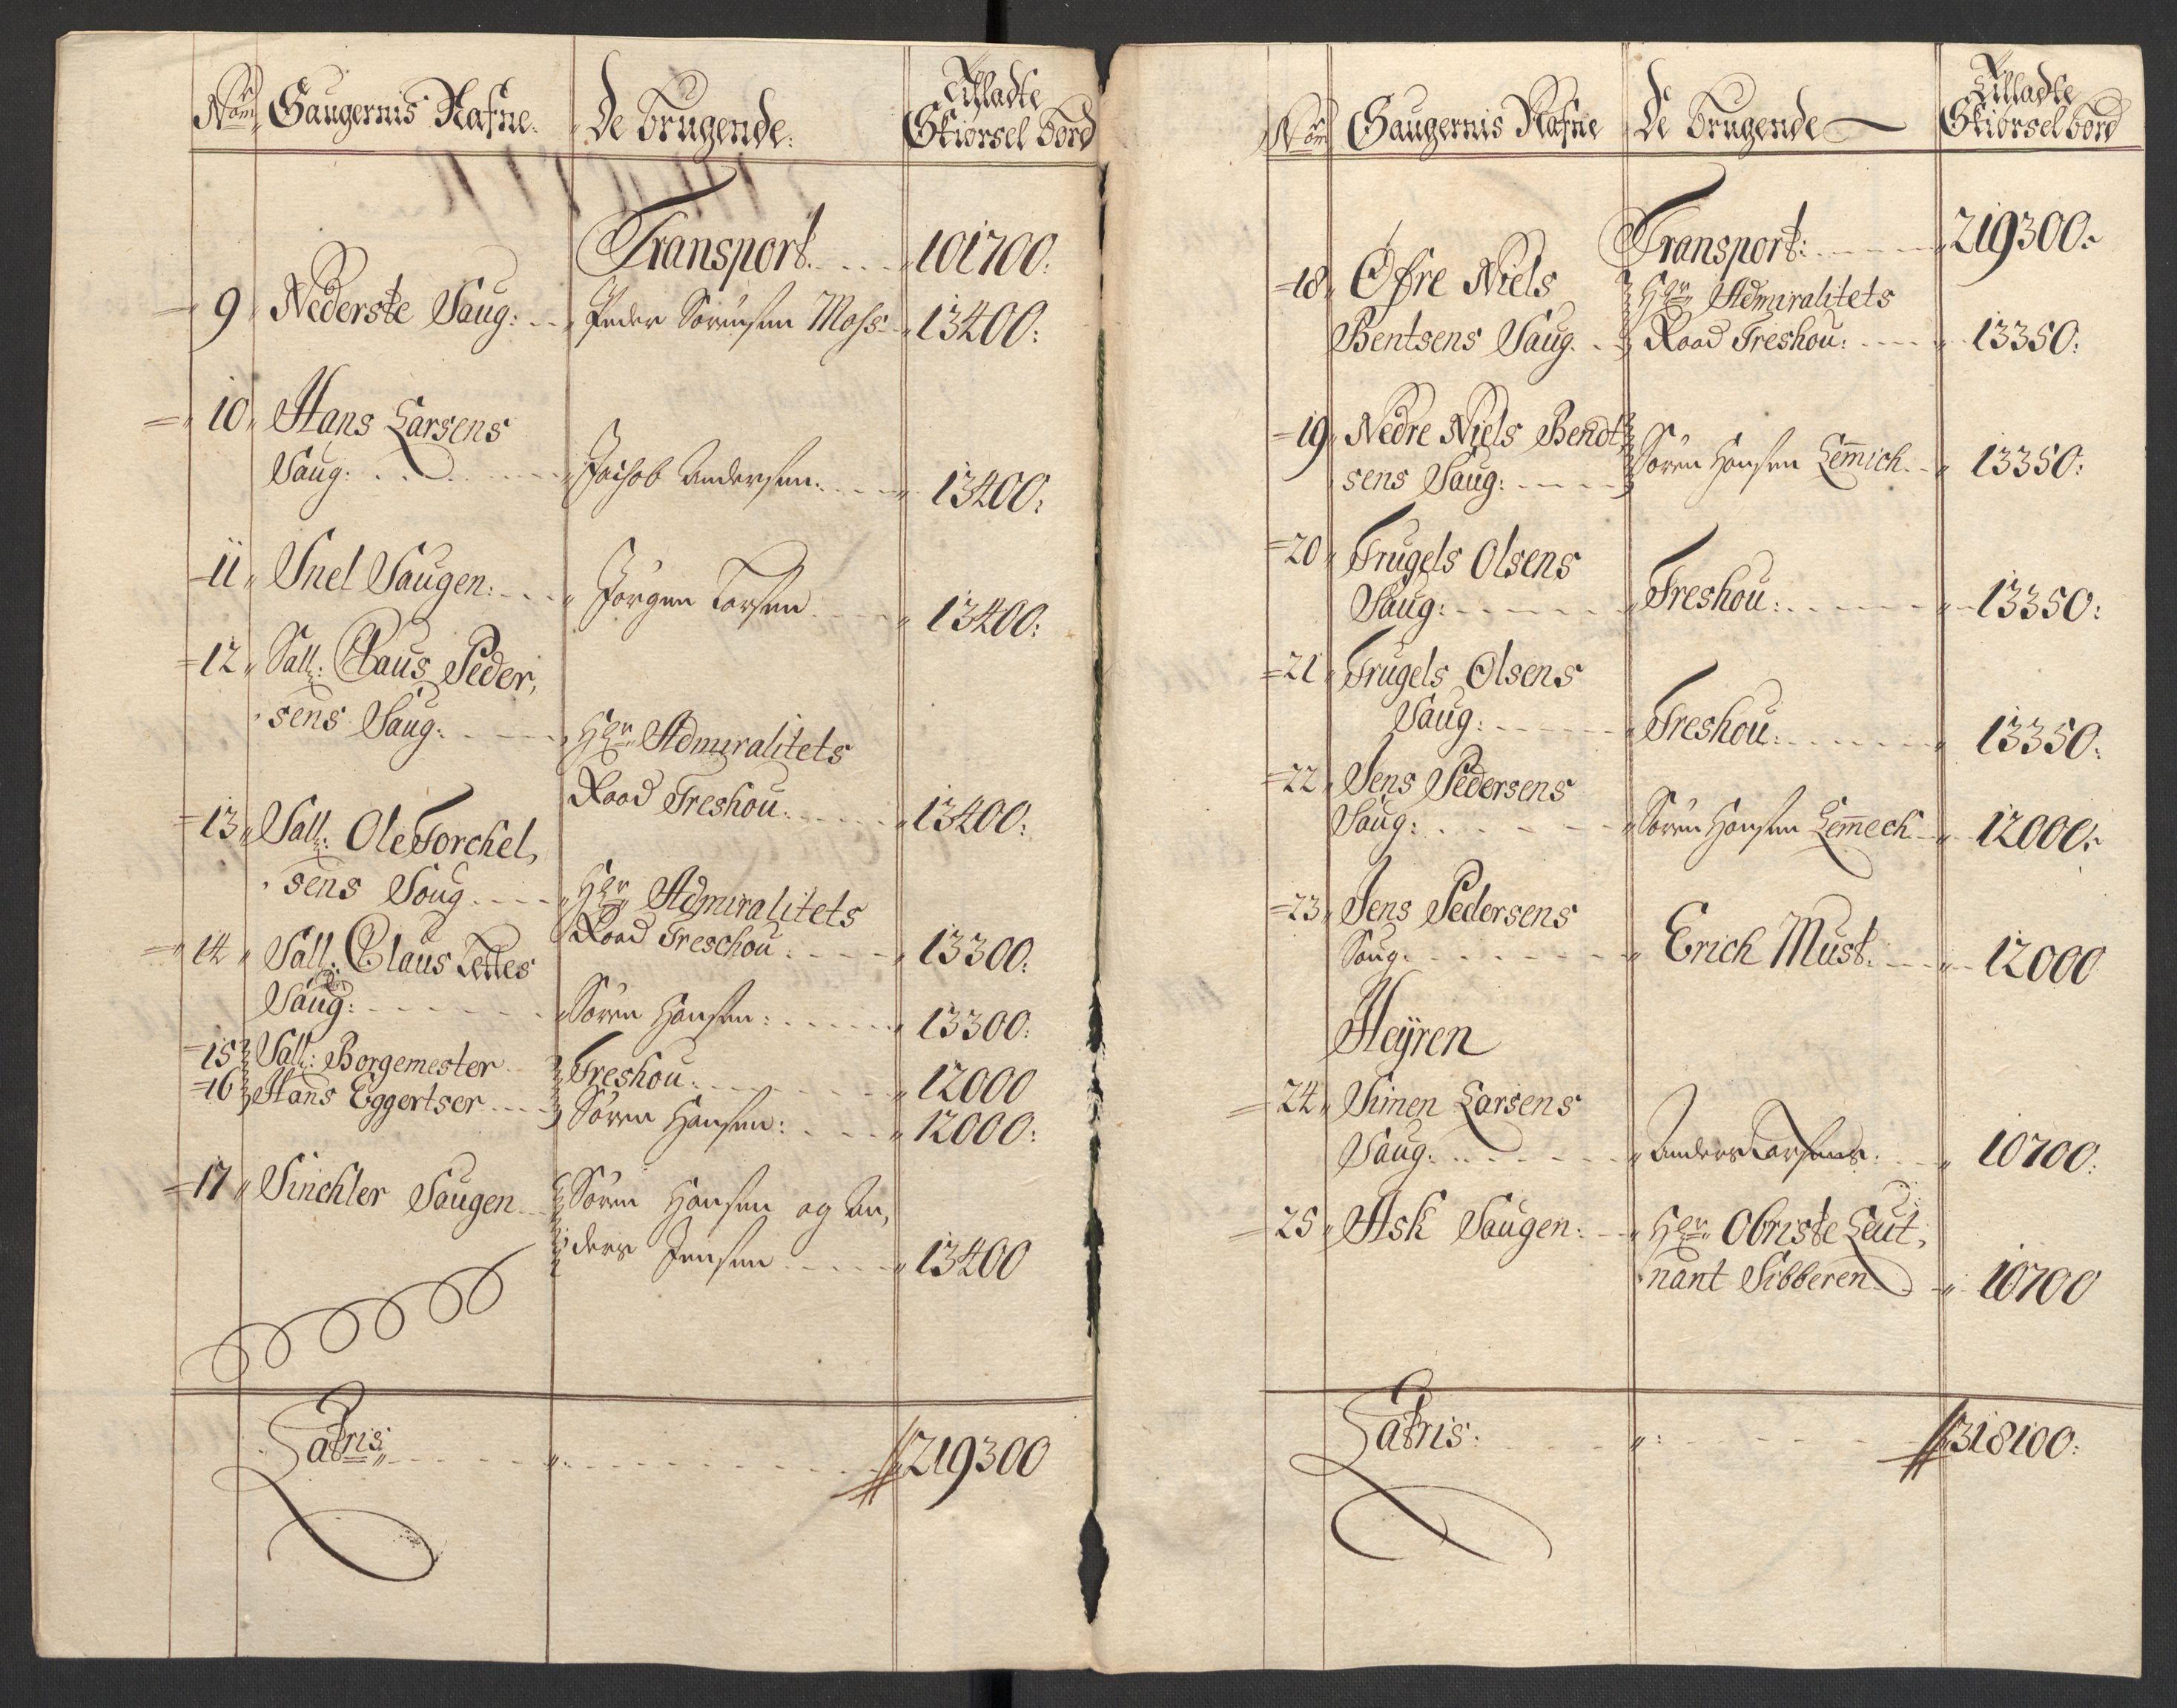 Nom Saugernis Nafne. De Brugende: Tilladte
Skiørsel Bord
Transport. 101700.
9 Nederste Saug: Peder Sørensen Moss. 13400:
10 Hans Larsens
Saug: Jachob Andersen. 13400:
11 Snel Saugen: Jørgen Larsen 13400:
12 Sall: Claus Peder,
sens Saug: Hr Admiralitets
Raad Treshou. 13400:
13 Sall: Ole Torchel,
sens Saug Hr Admiralitets
Raad Treschou: 13300:
14 Sall: Claus
Saug: Søren Hansen: 13300:
15 Sall: Borgemester Treshou. 12000
16 Hans Eggertser Søren Hansen: 12000:
17 Sinchler Saugen Søren Hansen og An,
ders Jensen 13400
Latris 219300
Nom Saugernis Nafne De Brugende Tilladte
Skiørsel bord
Transport: 219300:
18 Øfre Niels Hr Admiralitets
Bentsens Saug. Raad Treshou: 13350:
19 Nedre Niels Bendt,
sens Saug: Søren Hansen Lemich 13350:
20 Trugels Olsens
Saug: Treshou: 13350:
21 Trugels Olsens
Saug: Treshou: 13350:
22 Jens Pedersens
Saug: Søren Hansen Lemmech 12000:
23 Jens Pedersens
Saug. Erich Must. 12000
Heÿren
24 Simen Larsens
Saug. Anders Larsens. 10700:
25 Ask Saugen: Hr Obriste Leut,
nant Sibberen 10700
Latris: 318100: